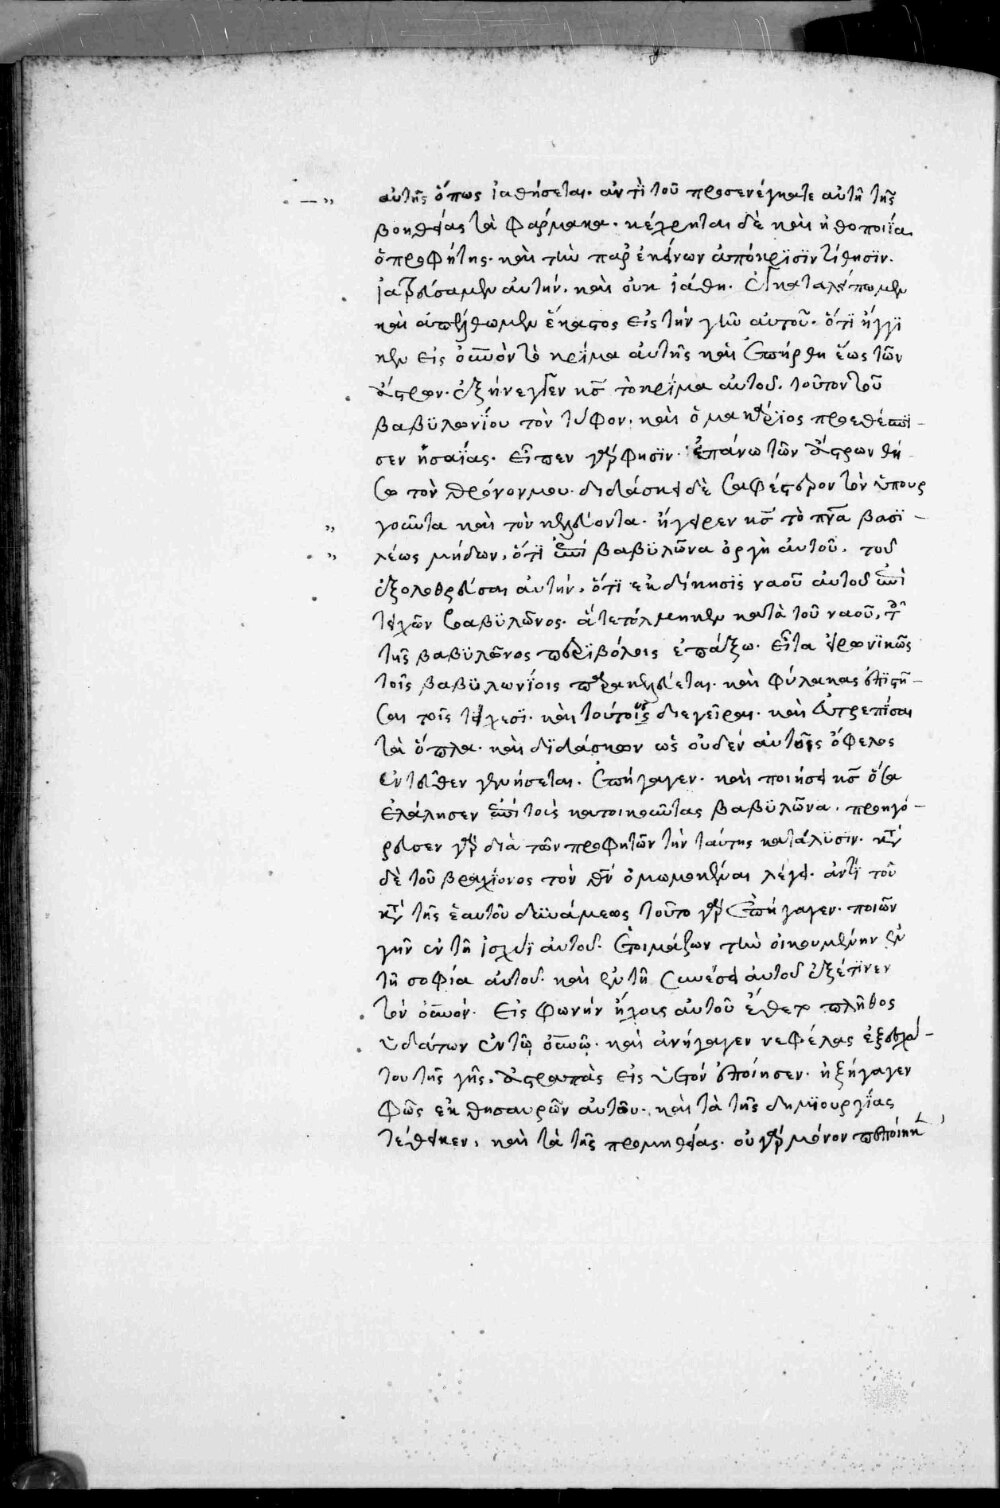 αὐτῆς ὅπως ἰαθήσεται· ἀντὶ τοῦ προσενέγκατε αὐτῆ τῆς
βοηθείας τὰ φάρμακα· κέχρηται δὲ καὶ ἠθοποιΐα
ὁ προφήτης· καὶ τὴν παρ' ἐκείνων ἀπόκρϊσϊν τίθησϊν·
ἰατρεύσαμεν αὐτήν· καὶ οὐκ ἰάθη· ἐγκαταλείπωμεν
καὶ ἀπέλθωμεν ἕκαστος εἰς τὴν γῆν αὐτοῦ· ὅτϊ ἤγγϊ
κεν εἰς οὐνὸν τὸ κρίμα αὐτῆς καὶ ἐπήρθη ἕως τῶν
ἄστρων· ἐξήνεγκεν κς τὸ κρίμα αὐτοῦ· τοῦτον τοῦ
βαβϋλωνΐου τὸν τύφον· καὶ ὁ μακάρϊος προεθέσπϊ
σεν ἡσαΐας· εἶπεν γάρ φησϊν· ἐπάνω τῶν ἄστρων θή
σω τὸν θρόνον μου· διδάσκει δὲ σαφέστερον τὸν ὑπουρ
γοῦντα καὶ τὸν κελεύοντα· ἤγειρεν κς τὸ πνα βασϊ
λέως μήδων· ὅτϊ ἐπὶ βαβϋλῶνα ὀργὴ αὐτοῦ· τοῦ
ἐξολοθρεῦσαι αὐτήν· ὅτϊ ἐκδίκησϊς ναοῦ αὐτοῦ ἐπὶ
τειχῶν βαβϋλῶνος· ἅ τετόλμηκεν κατὰ τοῦ ναοῦ,
τῆς βαβϋλῶνος περϊβόλοις ἐπάξω· εἶτα εἰρωνϊκῶς
τοῖς βαβϋλωνΐοις παρακελεύεται· καὶ φύλακας ἐπϊστῆ
σαι τοῖς τείχεσϊ· καὶ τούτους διεγεῖραι· καὶ εὐτρεπίσαι
τὰ ὅπλα· καὶ δϊδάσκων ὡς οὐδὲν αὐτοῖς ὄφελος
ἐντεῦθεν γενήσεται· ἐπήγαγεν· καὶ ποιήσει κς ὅσα
ἐλάλησεν ἐπὶ τοὺς κατοικοῦντας βαβϋλῶνα· προηγό
ρευσεν γὰρ διὰ τῶν προφητῶν τὴν ταύτης κατάλϋσϊν· κατὰ
δὲ τοῦ βραχΐονος τὸν θν ὀμωμοκέναι λέγει· ἀντὶ τοῦ
κατὰ τῆς ἑαυτοῦ δυνάμεως τοῦτο γὰρ ἐπήγαγεν· ποιῶν
γῆν ἐν τῆ ἰσχύϊ αὐτοῦ· ἑτοιμάζων τὴν οἰκουμένην ἐν
τῆ σοφία αὐτοῦ· καὶ ἐν τῆ συνέσει αὐτοῦ ἐξέτϊνεν
τὸν οὐνόν· εἰς φωνὴν ἤχους αὐτοῦ ἔθετο πλῆθος
ὑδάτων ἐν τῷ οὐνῷ· καὶ ἀνήγαγεν νεφέλας ἐξ ἐσχά
του τῆς γῆς· ἀστραπὰς εἰς ὑετὸν ἐποίησεν· ἢ ἐξήγαγεν
φῶς ἐκ θησαυρῶν αὐτοῦ· καὶ τὰ τῆς δημϊουργΐας
τέθεικεν· καὶ τὰ τῆς προμηθείας· οὐ γὰρ μόνον πεποίηκ